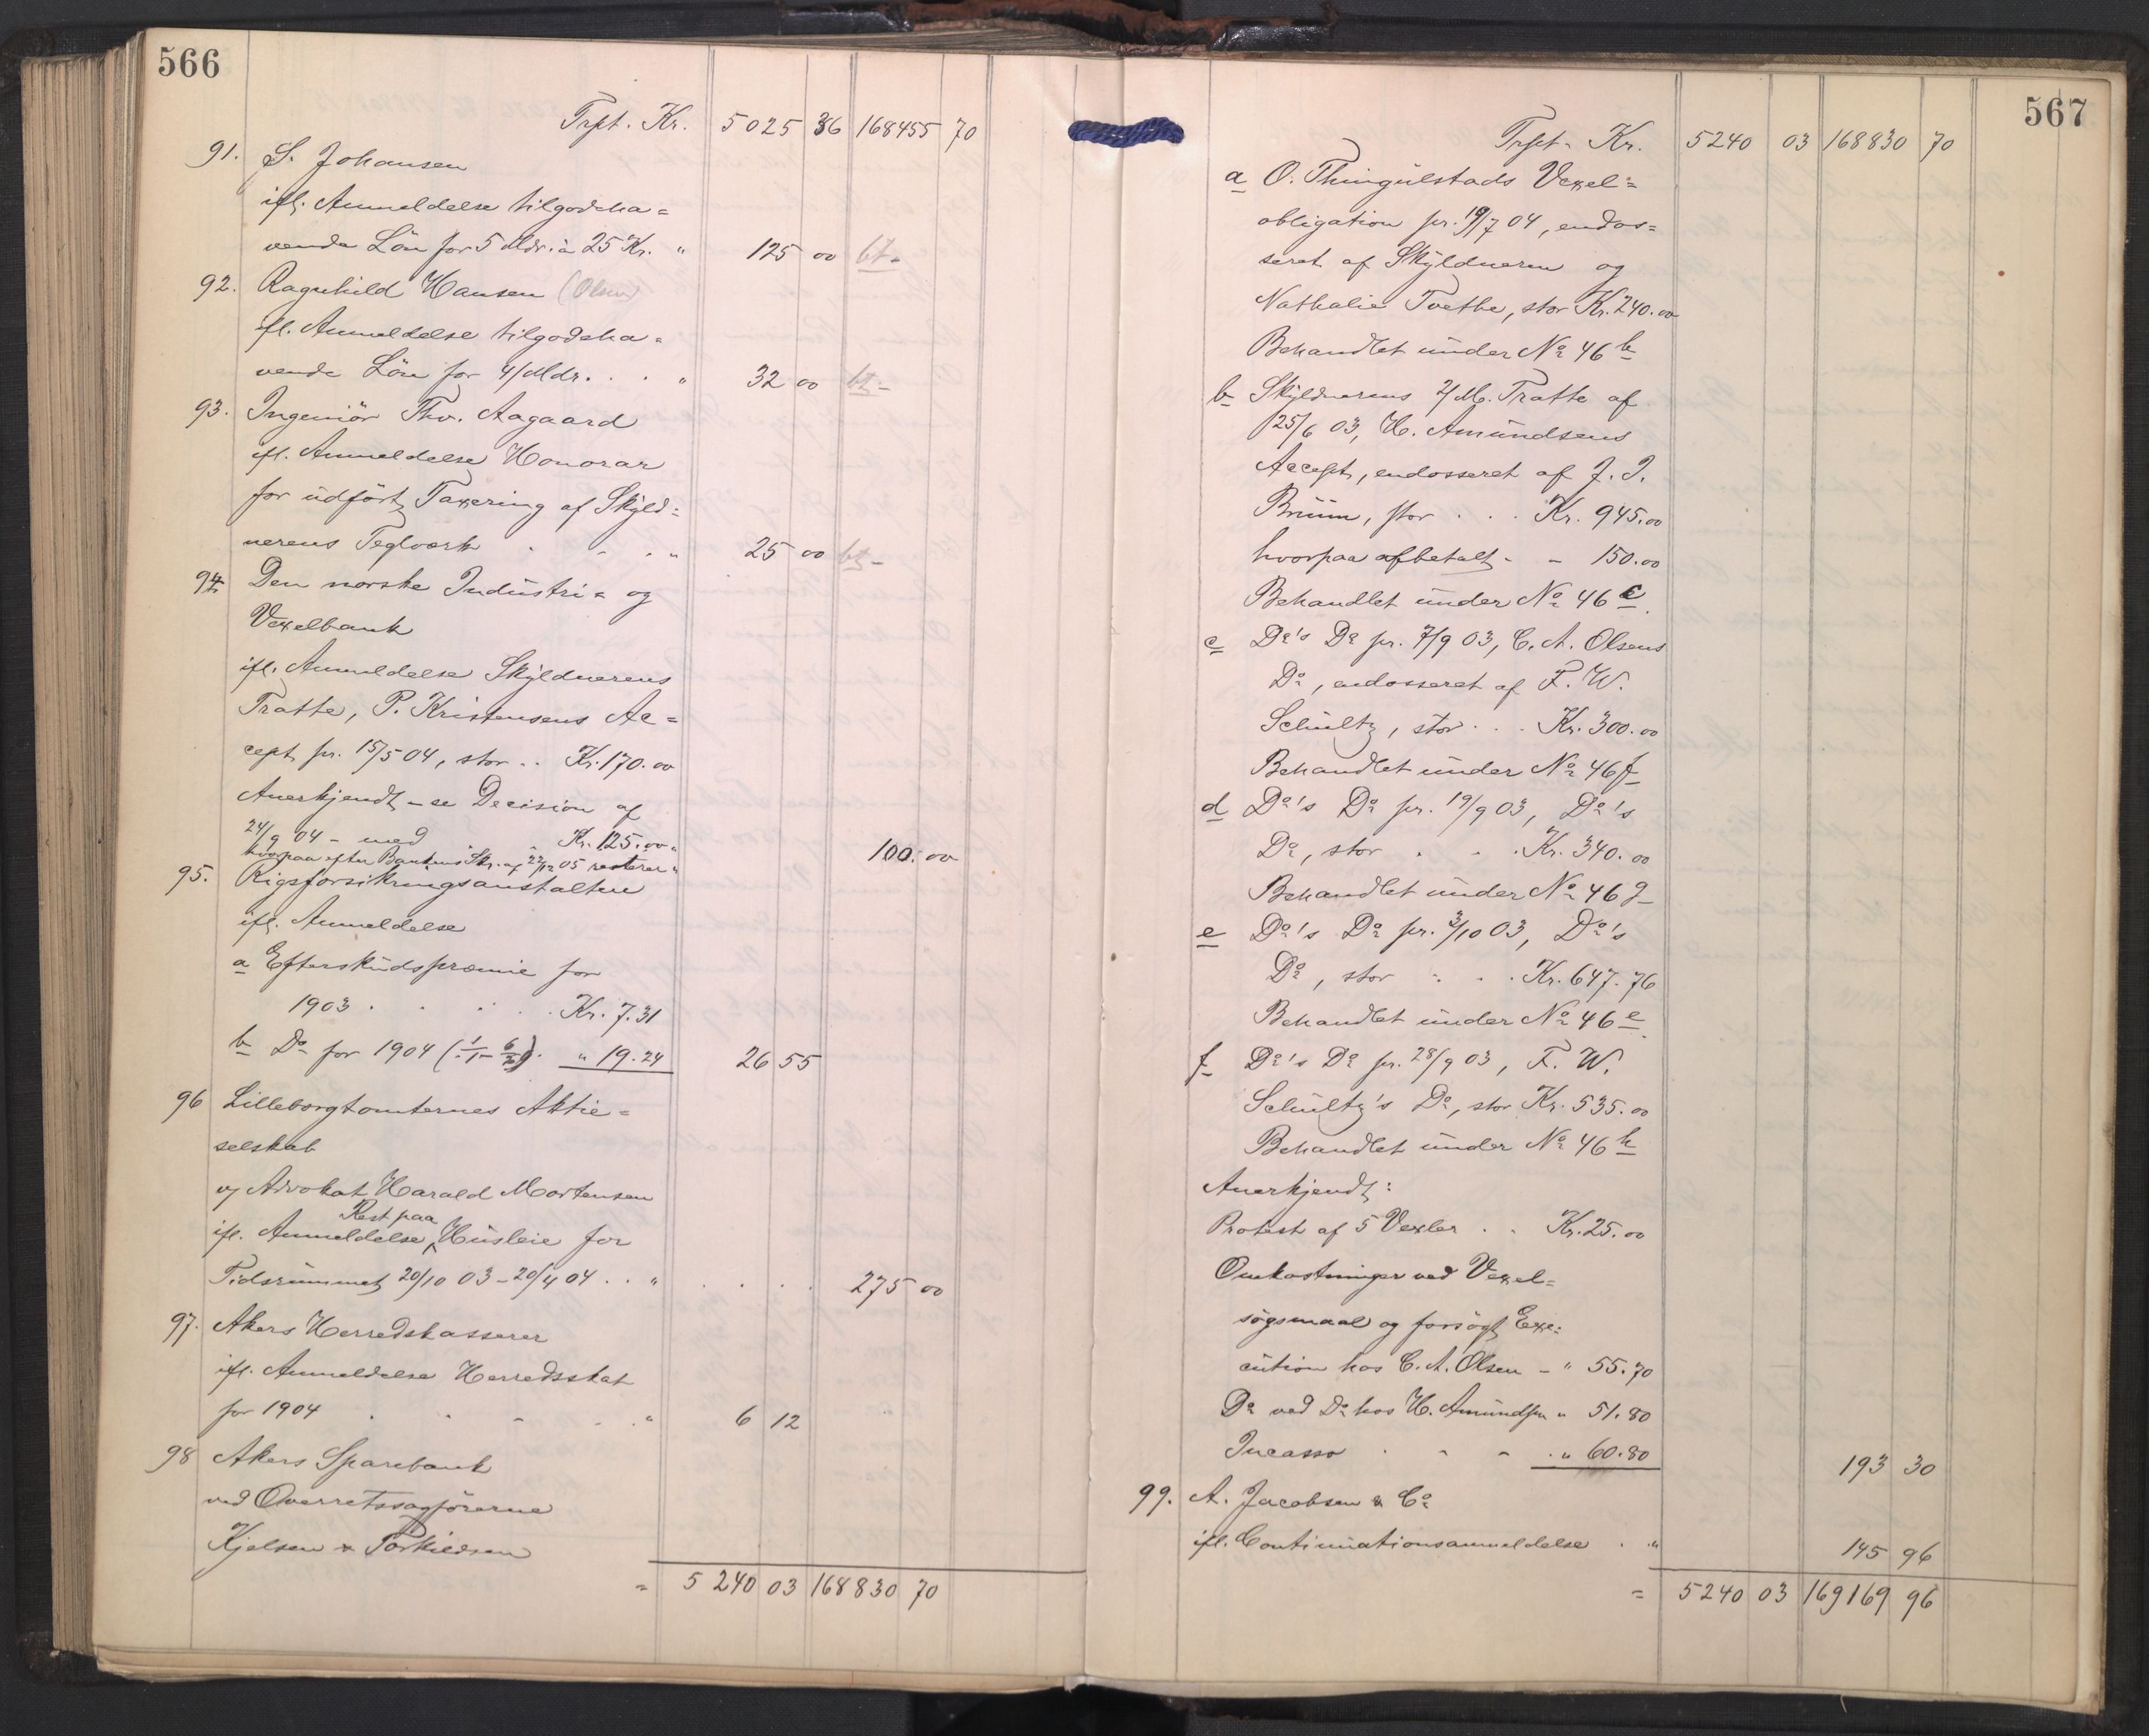 566
Trpt. Kr. 5025 36 168455 70
91. S. Johansen
ifl. Anmeldelse tilgodeha=
vende Løn for 5 Mdr. à 25 Kr. " 125 00 bt-
92. Ragnhild Hansen (Olsen)
ifl. Anmeldelse tilgodeha=
vende Løn for 4 Mdr. . . " 32 00 bt-
93. Ingeniör Thv. Aagaard
ifl. Anmeldelse Honorar
for udført Taxering af Skyld=
nerens Teglværk - - - " 25 00 bt-
94. Den norske Industri= og
Vexelbank
ifl. Anmeldelse Skyldnerens
Tratte, P. Kristensens Ac=
cept pr. 15/5 04, stor .. Kr. 170.00
Anerkjendt - se Decision af
24/9 04 - med - Kr. 125.00 "
hvorpaa efter Bankens Skr. af 22/12 05 resterer " 100.00
95. Rigsforsikringsanstalten
ifl. Anmeldelse
a Efterskudspræmie for
1903 . . . . Kr. 7.31
b Do for 1904 (1/1 - 6/7). " 19.24 26 55
96 Lilleborgtomternes Aktie=
selskab
v/ Advokat Harald Mortensen
Rest paa
ifl. Anmeldelse Husleie for
Tidsrummet 20/10 03 - 20/4 04 . . " . . . . 275 00
97. Akers Herredskasserer
ifl. Anmeldelse Herredsskat
for 1904 . . - - . " 6 12
98 Akers Sparebank
ved Overretssagførerne
Kjelsen & Torkildsen
= 5240 03 168830 70
567
Trpt. Kr. 5240 03 168830 70
a O. Thingulstads Vexel=
obligation pr. 19/7 04, endos=
seret af Skyldneren og
Nathalie Tvethe, stor Kr. 240.00
Behandlet under No 46 b
b Skyldnerens 2/M. Tratte af
25/6 03, H. Amundsens
Accept, endosseret af J. J.
Bruun, stor . . . Kr. 945.00
hvorpaa afbetalt - - 150.00
Behandlet under No 46 c
c Do's Do pr. 7/9 03, C. A. Olsens
Do, endosseret af F. W.
Schultz, stor . . . Kr. 300.00
Behandlet under No 46 f
d Do's Do pr. 19/9 03, Do's
Do, stor . . . Kr. 340.00
Behandlet under No 46 g
e Do's Do pr. 3/10 03, Do's
Do, stor . . . Kr. 647.76
Behandlet under No 46 e
f Do's Do pr. 28/9 03, F. W.
Schultz's Do, stor Kr. 535.00
Behandlet under No 46 h
Anerkjendt:
Protest af 5 Vexler . . Kr. 25.00
Omkostninger ved Vexel=
søgsmaal og forsøgt Exe=
cution hos C. A. Olsen - " 55.70
Do ved Do hos H. Amundsen " 51.80
Incasso . - - . " 60.80 193 30
99. A. Jacobsen & Co
ifl. Continuationsanmeldelse . . " 145 96
= 5240 03 169169 96